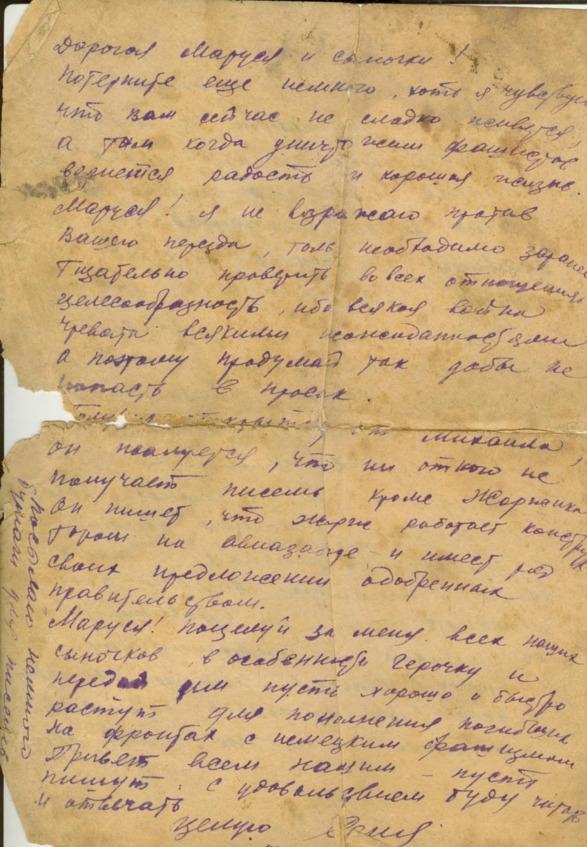 Дорогая Маруся и сыночки!
Потерпите еще немного, хоть я чувствую
что вам сейчас не сладко живется!
а там когда уничтожим фашистов
вернется радость и хорошая жизнь.
Маруся! я не возражаю против
Вашего переезда, толь необходимо заранее
тщательно проверить во всех отношениях
целесообразность, ибо всякая война
чревата всякими неожиданностями
а поэтому продумай так дабы не
попасть в просак.
от Михаила!
он жалуется, что ни от кого не
получает писем кроме Жоржика
Он пишет, что Жорж работает констру
тором на авиазаводе и имеет ряд
своих предложений одобренных
правительством.
Маруся! поцелуй за меня всех наших
сыночков, в особенности Герочку и
передай им пусть хорошо и быстро
растут для пополнения погибших
на фронтах с немецким фашизмом
Привет всем нашим – пусть
пишут, с удовольствием буду читать
и отвечать
целую
Посылаю немного
бумаги для писем